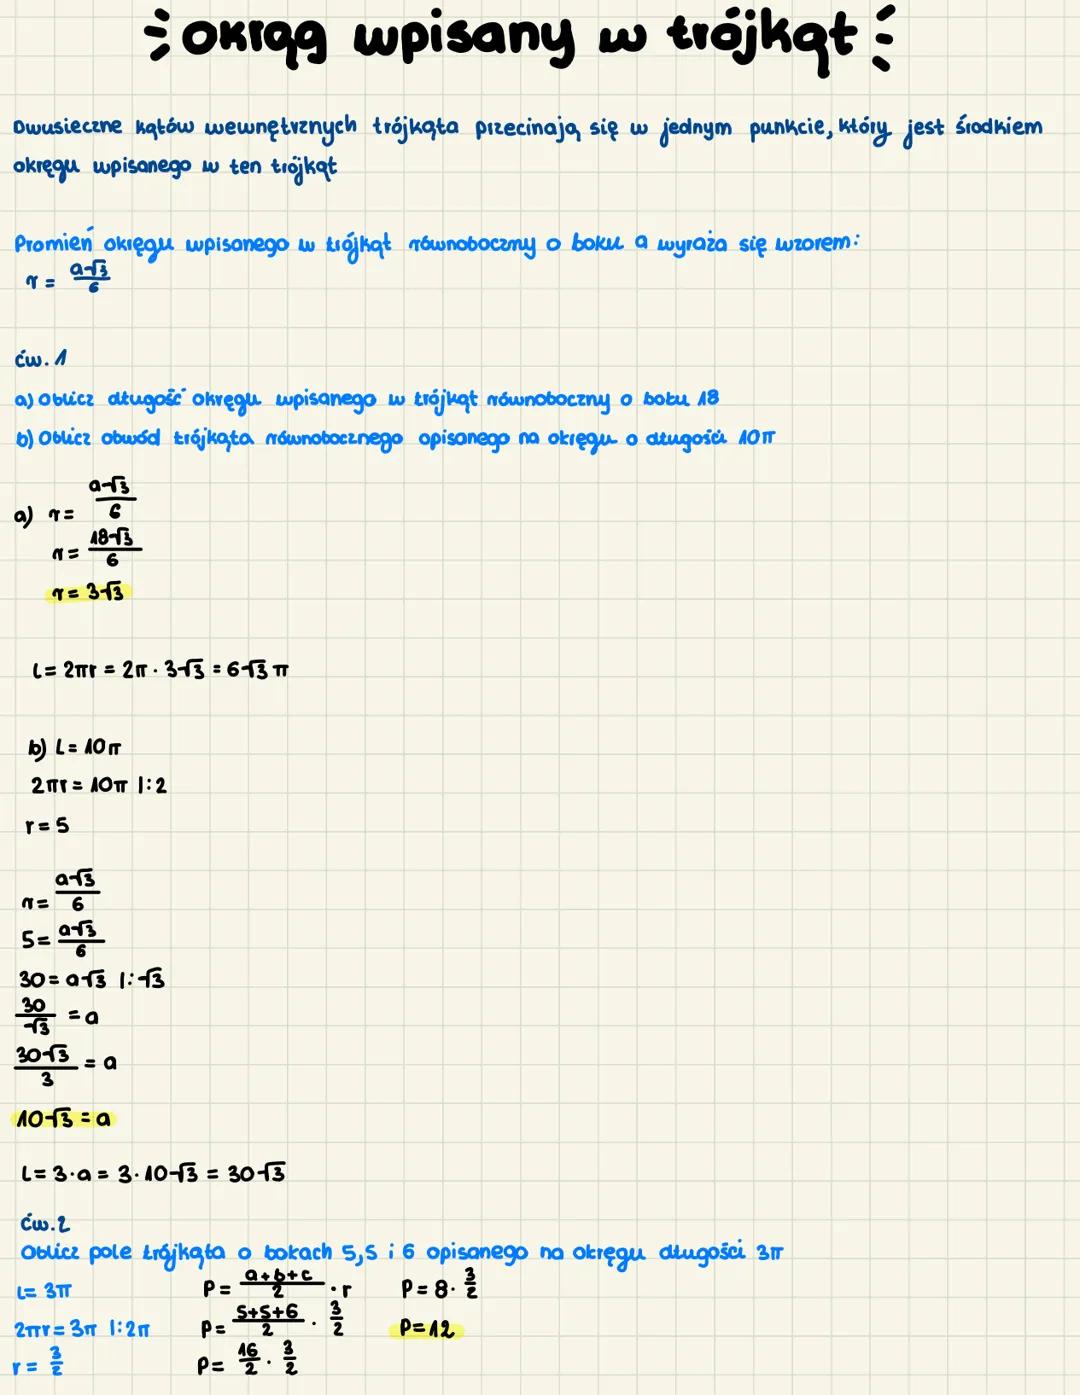 okrąg wpisany w trójkąt
Dwusieczne kątów wewnętrznych trójkąta przecinają się w jednym punkcie, który jest środkiem
okręgu wpisanego w ten trójkąt
Promień okręgu wpisanego w trójkąt równoboczny o boku a wyraża się wzorem:
r = a√3/6
ćw. 1
a) Oblicz długość okręgu wpisanego w trójkąt równoboczny o boku 18
b) Oblicz obwód trójkąta równobocznego opisanego na okręgu o długości 10π
a) r = a√3/6
r = 18√3/6
r = 3√3
L = 2πr = 2π · 3√3 = 6√3 π
b) L = 10π
2πr = 10π |:2
r = 5
r = a√3/6
5 = a√3/6
30 = a√3 |:√3
30/√3 = a
30√3/3 = a
10√3 = a
L = 3·a = 3·10√3 = 30√3
ćw.2
Oblicz pole trójkąta o bokach 5,5 i 6 opisanego na okręgu długości 3π
L = 3π P = a+b+c/2 · r P = 8 · 3/2
2πr = 3π |:2π P = 5+5+6/2 · 3/2 P = 12
r = 3/2 P = 16/2 · 3/2